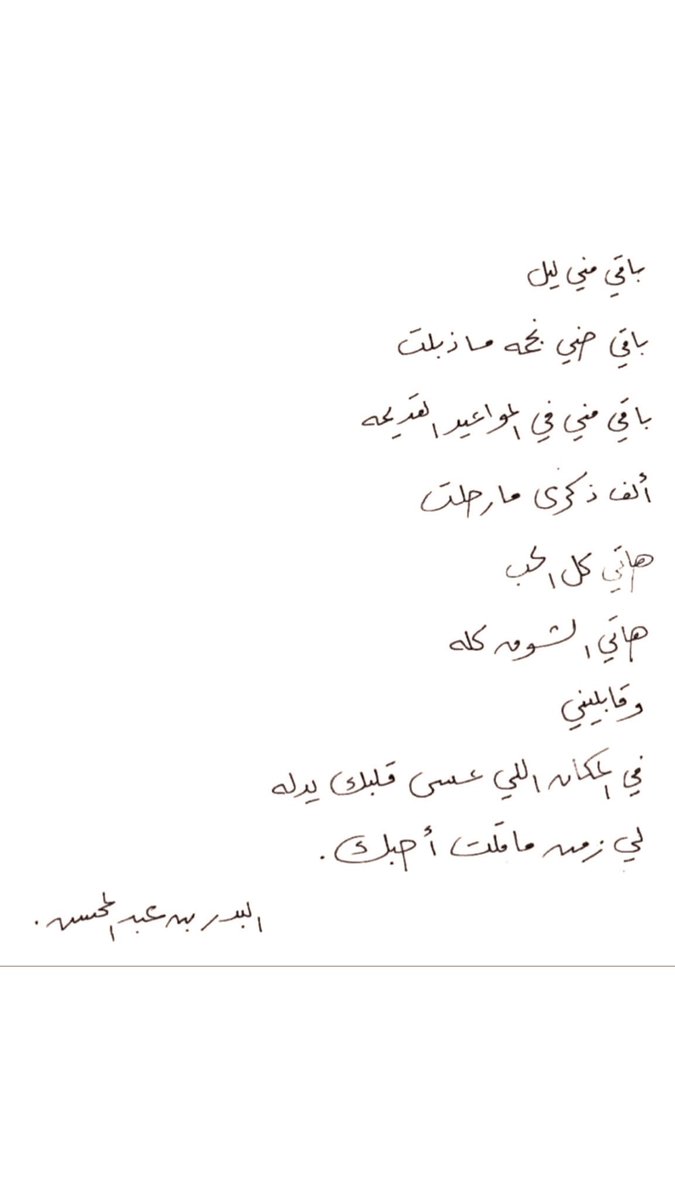 باقي مني ليل
باقي مني نجمه ما ذبلت
باقي مني في المواعيد القديمه
ألف ذكرى ما رحلت
هاتي كل الحب
هاتي الشوق كله
وقابليني
في المكان اللي عسى قلبك يدله
لي زمن ما قلت أحبك .
البدر بن عبد المحسن .